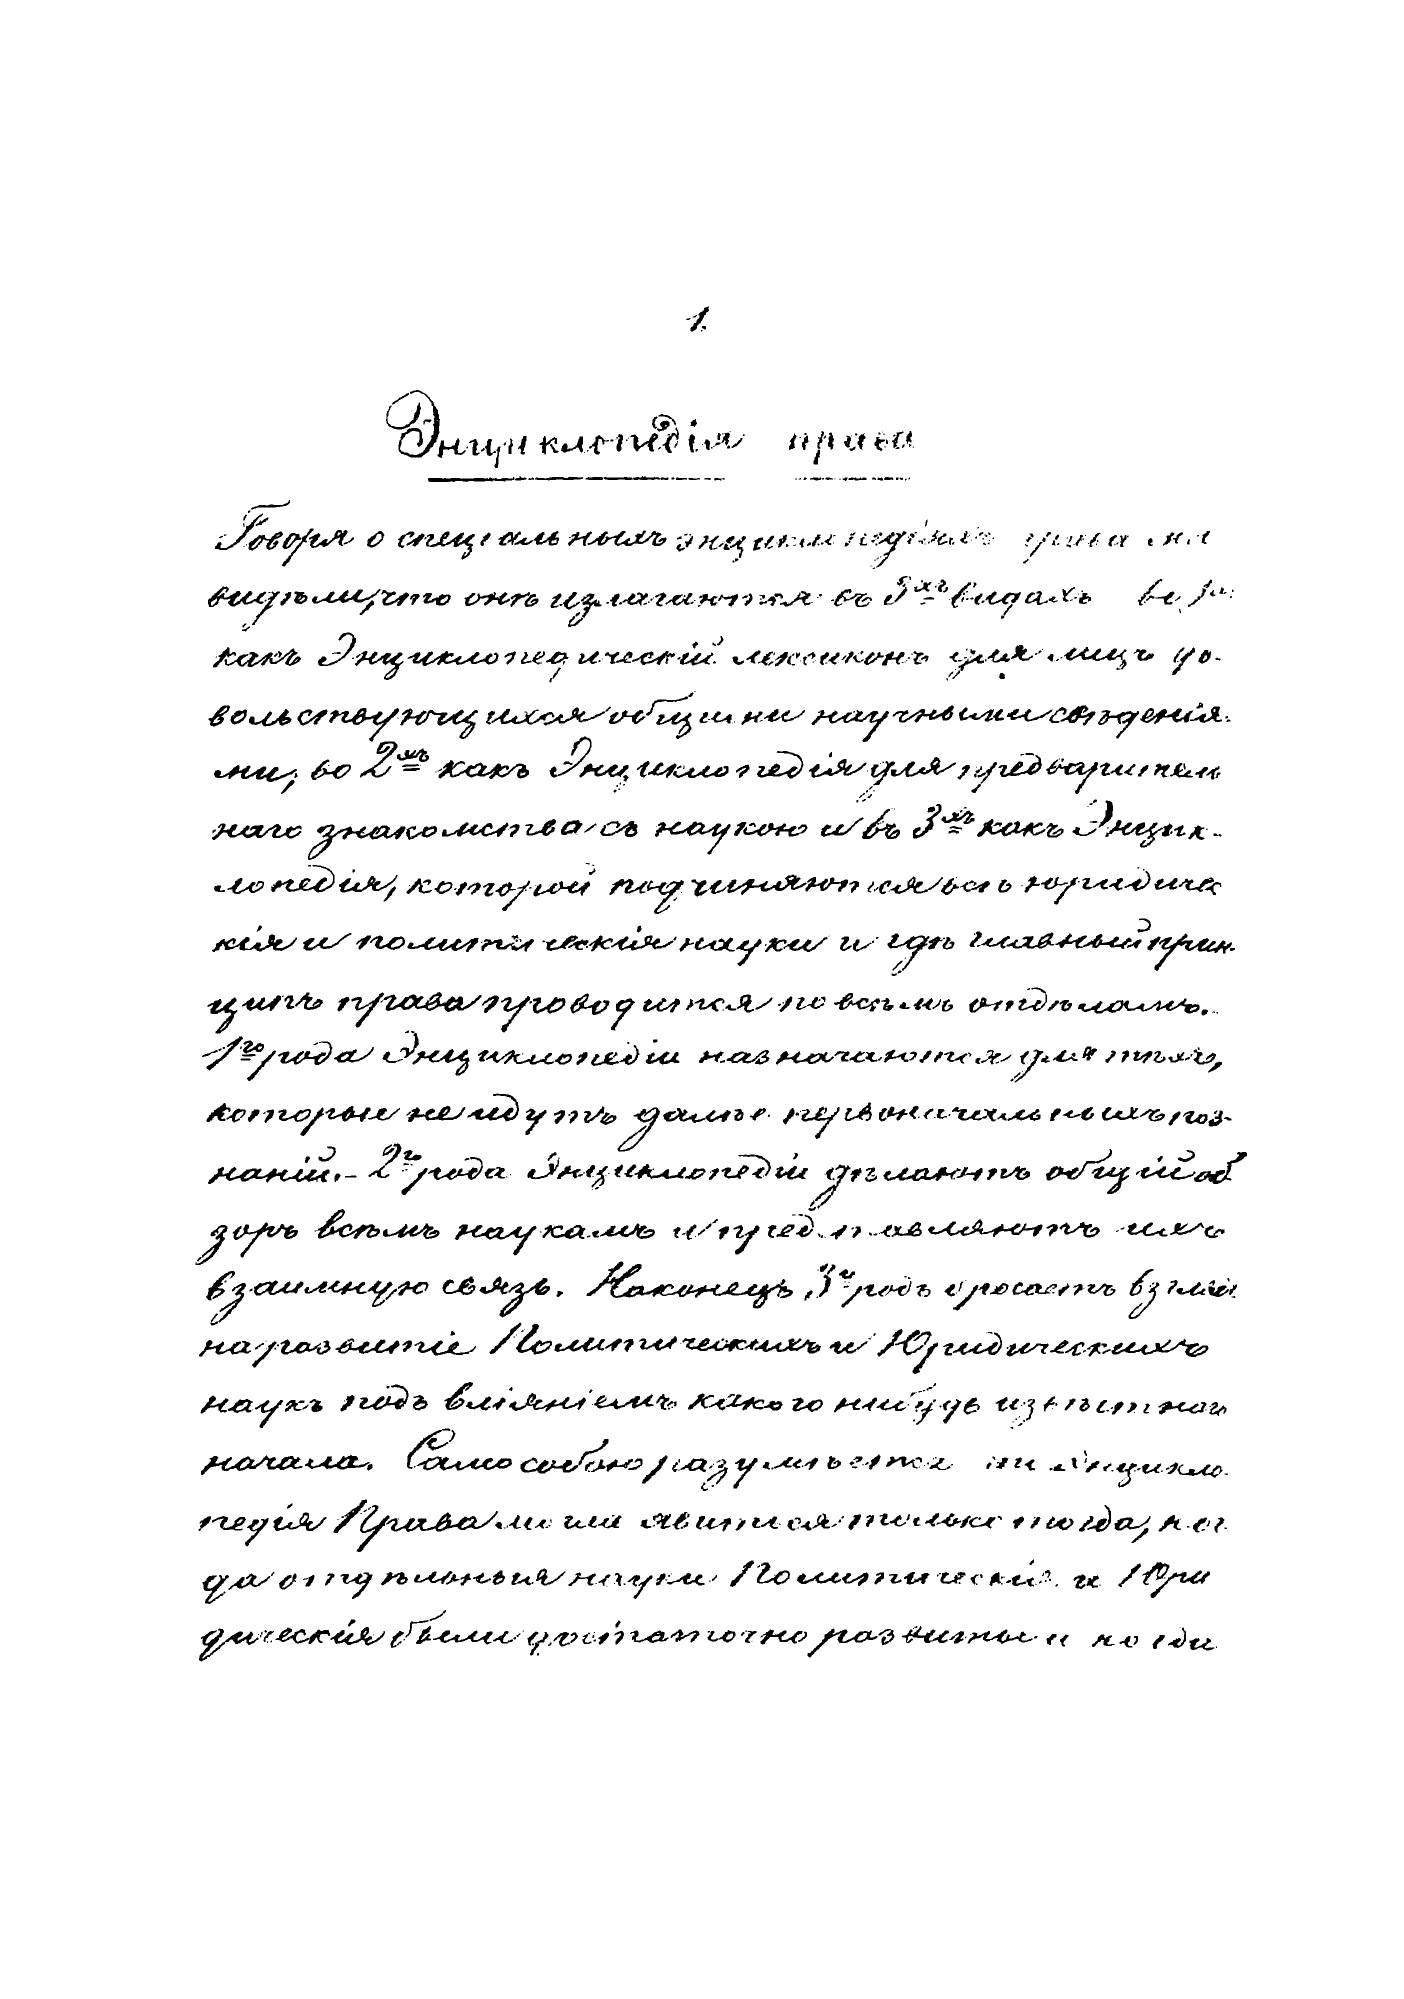 1.
Энциклопедія права
Говоря о спеціальныхъ энциклопедіяхъ права мы
видѣли, что онѣ излагаются въ 3хъ видахъ во 1хъ
какъ Энциклопедическій лексиконъ для лицъ до-
вольствующихся общими научными свѣденія-
ми, во 2хъ какъ Энциклопедія для предваритель
наго знакомства съ наукою и въ 3хъ какъ Энцик-
лопедія, которой подчиняются всѣ юридичес
кія и политическія науки и гдѣ главный прин-
ципъ права проводится по всѣмъ отдѣламъ.
1го рода Энциклопедіи назначаются для тѣхъ,
которые не идутъ далѣе первоначальныхъ поз-
наній.- 2го рода Энциклопедіи дѣлаютъ общій об
зоръ всѣмъ наукамъ и представляютъ ихъ
взаимную связь. Наконецъ, 3й родъ бросаетъ взгляд
на развитіе Политическихъ и Юридическихъ
наукъ подъ вліяніемъ какого нибудь извѣстнаго
начала. Само собою разумѣется Энцикло-
педія Права могла явиться только тогда, ког
да отдѣльныя науки Политическія и Юри
дическія были достаточно развиты и когда